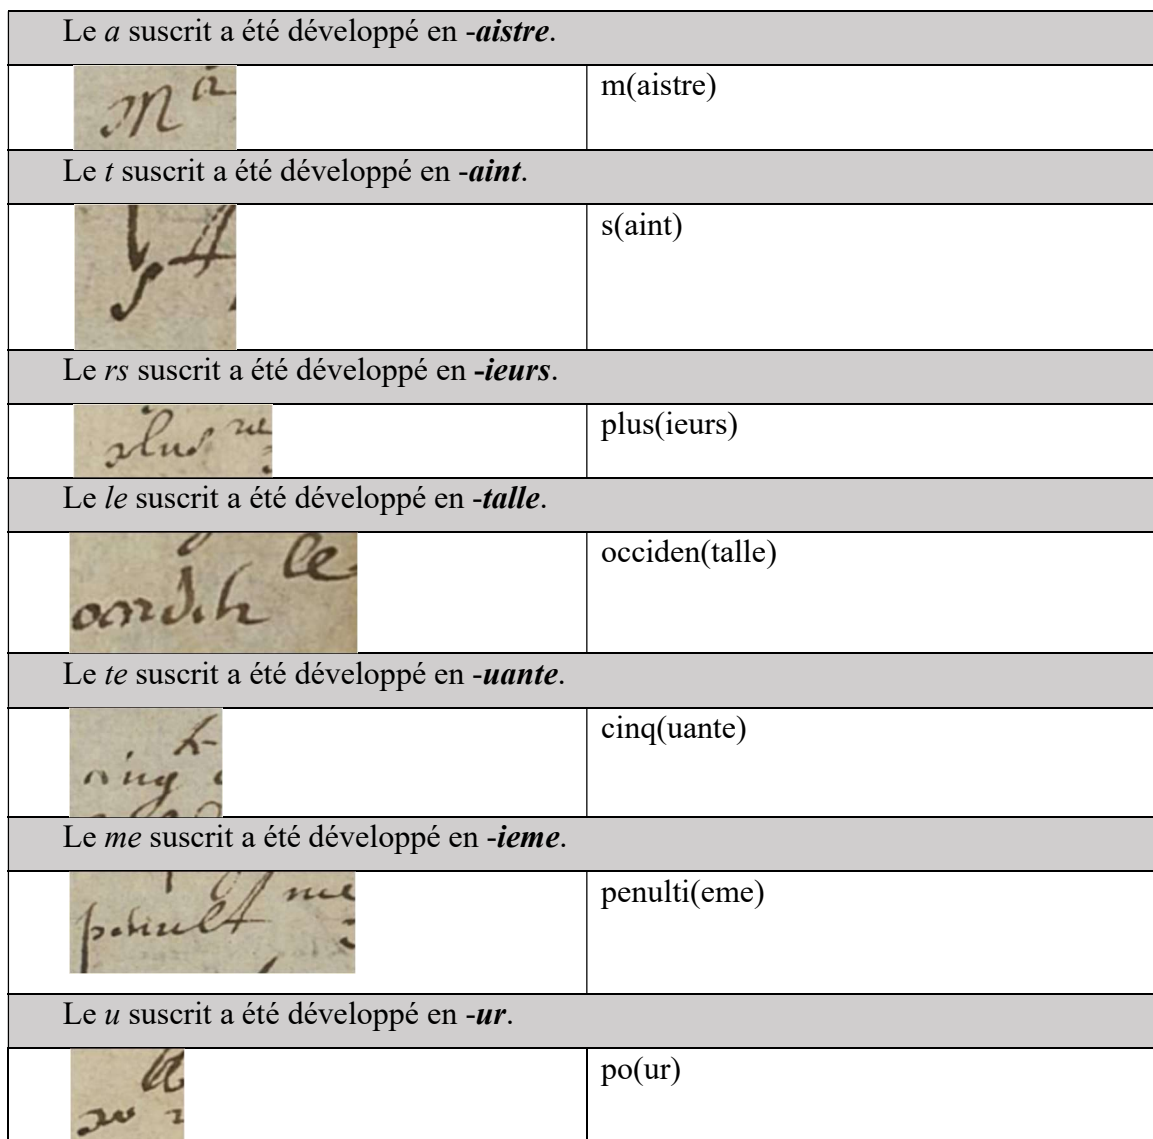 Le a suscrit a été développé en -aistre.
Ma
m(aistre)
Le t suscrit a été développé en -aint.
st
s(aint)
Le rs suscrit a été développé en -ieurs.
plus rs
plus(ieurs)
Le le suscrit a été développé en -talle.
le
occiden(talle)
Le te suscrit a été développé en -uante.
cinq te
cinq(uante)
Le me suscrit a été développé en -ieme.
penult me
penulti(eme)
Le u suscrit a été développé en -ur.
po u
po(ur)